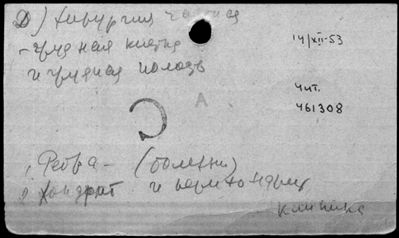 Д) Хирургия частная
- грудная клетка
и грудная полость
14/XII-53
Чит.
461308
А
С
1, Ребра - (болезни)
2 Хондрит и перихондрит
клиника